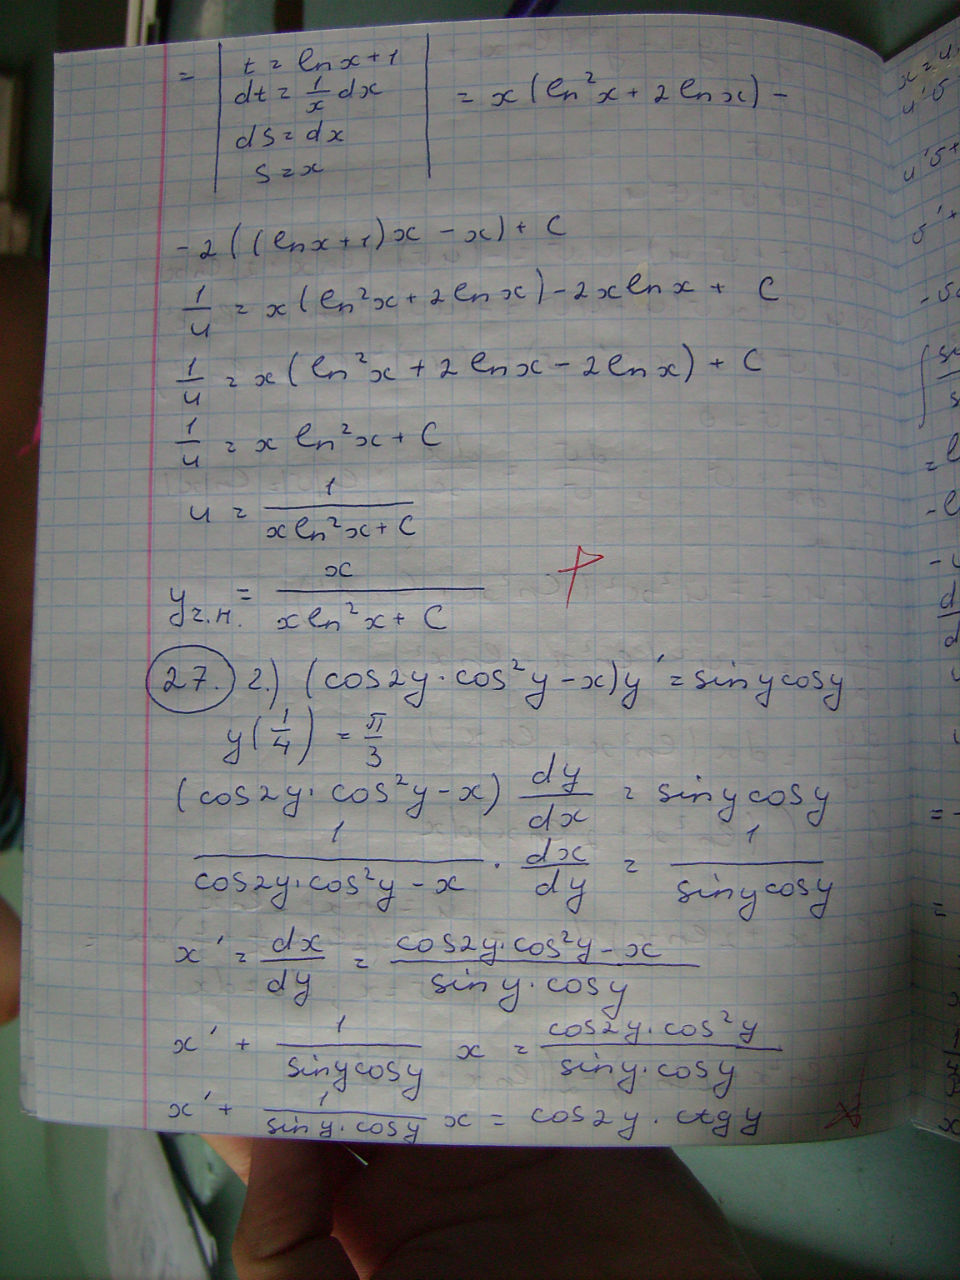 = | t = ln x + 1
dt = 1/x dx
ds = dx
s = x | = x (ln²x + 2 ln x) -
- 2 ((ln x + 1) x - x) + C
1/u = x (ln²x + 2 ln x) - 2x ln x + C
1/u = x (ln²x + 2 ln x - 2 ln x) + C
1/u = x ln²x + C
u = 1/(x ln²x + C)
y г.н. = x/(x ln²x + C)
27. 2.) (cos2y · cos²y - x) y' = siny cosy
y(1/4) = π/3
(cos2y · cos²y - x) dy/dx = siny cosy
1/(cos2y · cos²y - x) · dx/dy = 1/(siny cosy)
x' = dx/dy = (cos2y · cos²y - x)/(siny · cosy)
x' + 1/(siny cosy) x = (cos2y · cos²y)/(siny · cosy)
x' + 1/(siny · cosy) x = cos2y · ctgy